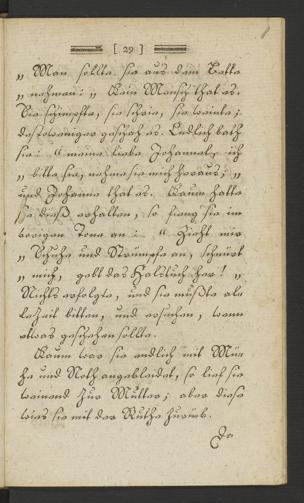 [ 29 ]
„ Man sollte sie aus dem Bette
„ nehmen: „ Kein Mensch that es.
Sie schimpfte, sie schrie, sie weinte;
destoweniger geschah es. Endlich bat
sie: “ meine liebe Johanna, ich
„ bitte sie, nehme sie mich heraus; „
und Johanna that es. Kaum hatte
sie dieß erhalten, so fieng sie im
vorigen Tone an: “ Zieht mir
„ Schuhe und Strümpfe an, schnürt
„ mich, gebt das Halstuch her! „
Nichts erfolgte, und sie mußte alle
Zeit bitten, und ersuchen, wenn
etwas geschehen sollte.
Kaum war sie endlich mit Mü=
he und Noth angekleidet, so lief sie
weinend zur Mutter; aber diese
wies sie mit der Ruthe zurück.
Da